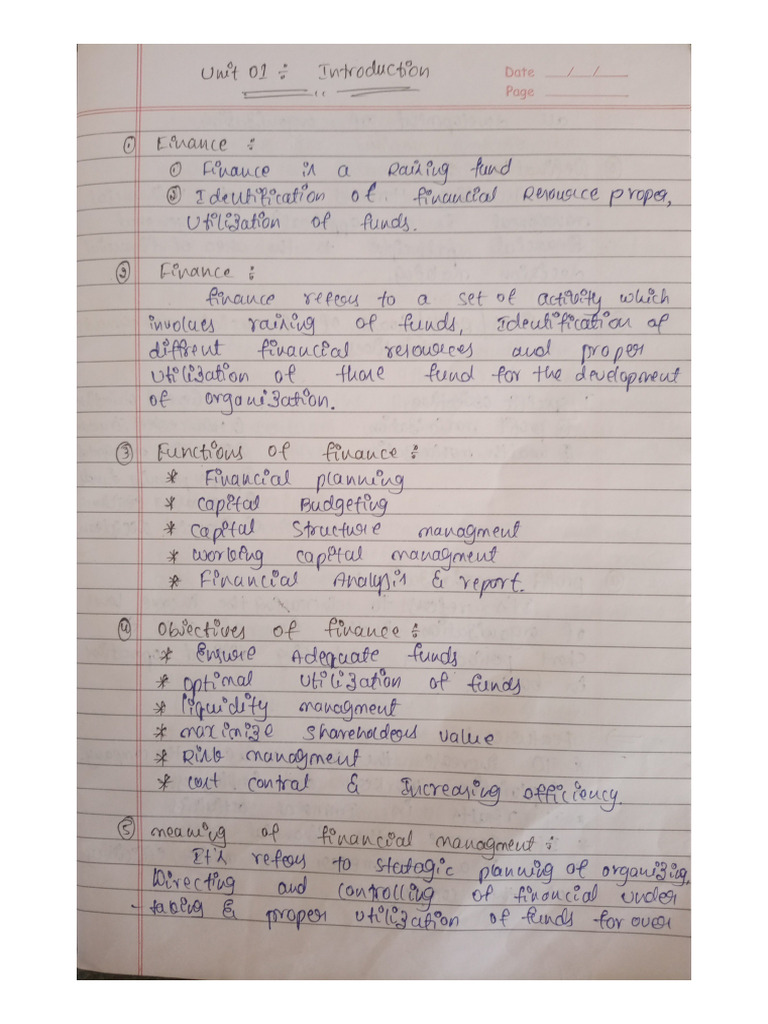 Unit 01 : Introduction
Date __/__/__
Page ________
① Finance :
① Finance is a Raising fund
② Identification of financial Resource proper,
Utilization of funds.
② Finance :
finance refers to a set of activity which
involves raising of funds, Identification of
different financial resources and proper
Utilization of those fund for the development
of organization.
③ Functions of finance :
* Financial planning
* Capital Budgeting
* Capital Structure managment
* Working capital managment
* Financial Analysis & report.
④ Objectives of finance :
* Ensure Adequate funds
* Optimal Utilization of funds
* liquidity managment
* maximize Shareholders value
* Risk managment
* Cost control & Increasing efficiency.
⑤ meaning of financial managment :
It's refers to Stedagic planning of organizing,
Directing and controlling of financial under
-taking & proper utilization of funds for over